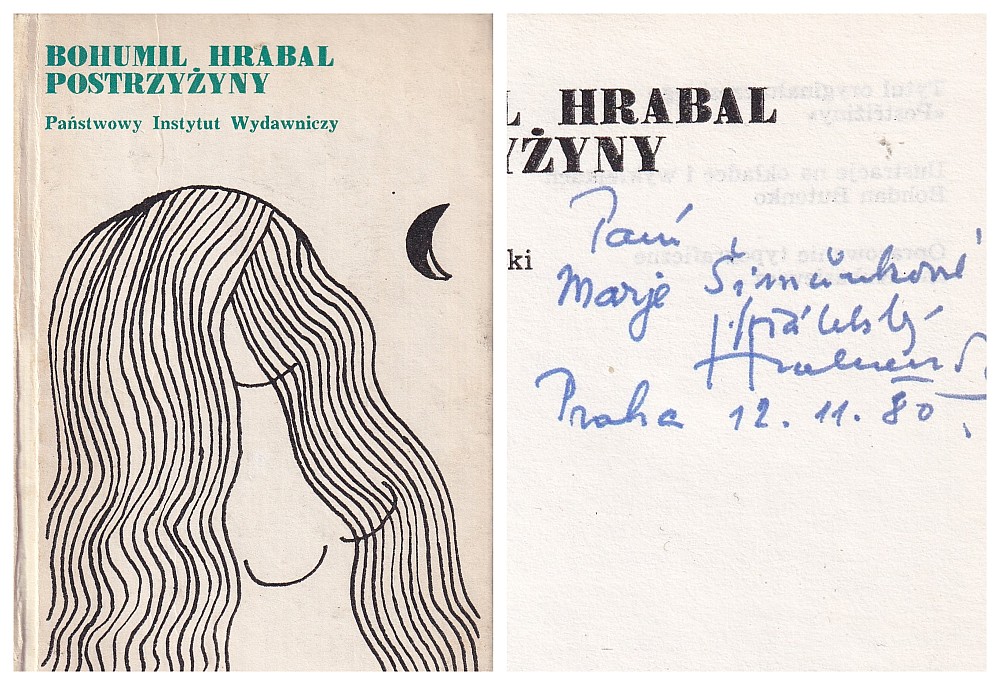 BOHUMIL HRABAL
POSTRZYŻYNY
Państwowy Instytut Wydawniczy
L HRABAL
YŻYNY
ki
Tytuł oryginału
«Postřižiny»
Ilustracje na okładce i
Bohdan Butenko
Opracowanie typograficzne
Paní
Marje
Praha 12. 11. 80